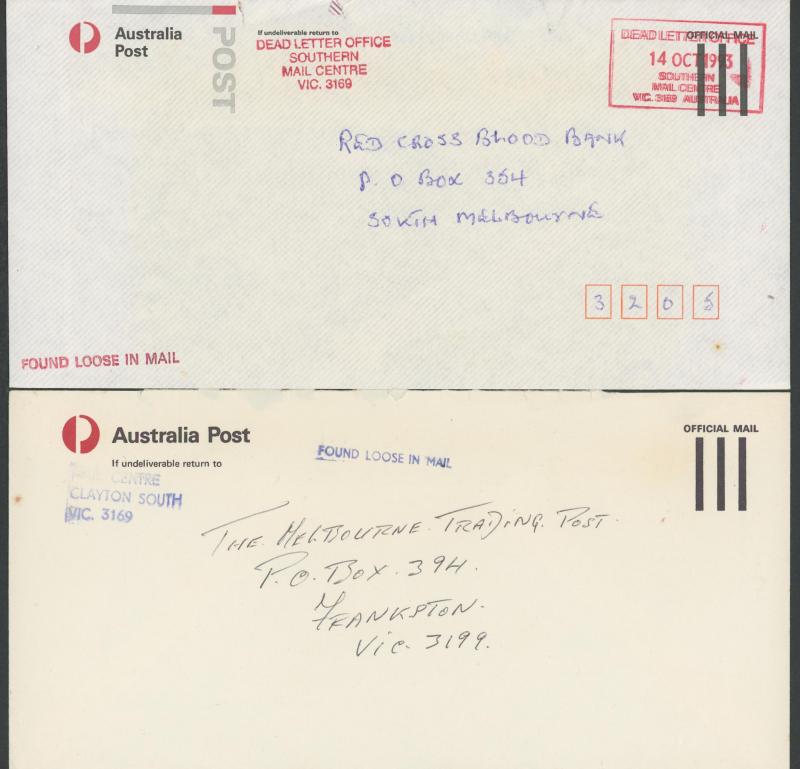 Australia
Post
POST
If undeliverable return to
DEAD LETTER OFFICE
SOUTHERN
MAIL CENTRE
VIC. 3169
OFFICIAL MAIL
DEAD LETTER OFFICE
14 OCT 1993
SOUTHERN
MAIL CENTRE
VIC. 3169 AUSTRALIA
RED CROSS BLOOD BANK
P. O BOX 354
SOUTH MELBOURNE
3 2 0 5
FOUND LOOSE IN MAIL
Australia Post
If undeliverable return to
MAIL CENTRE
CLAYTON SOUTH
VIC. 3169
FOUND LOOSE IN MAIL
OFFICIAL MAIL
THE. MELBOURNE. TRADING. POST.
P.O. BOX. 394.
FRANKSTON.
Vic. 3199.